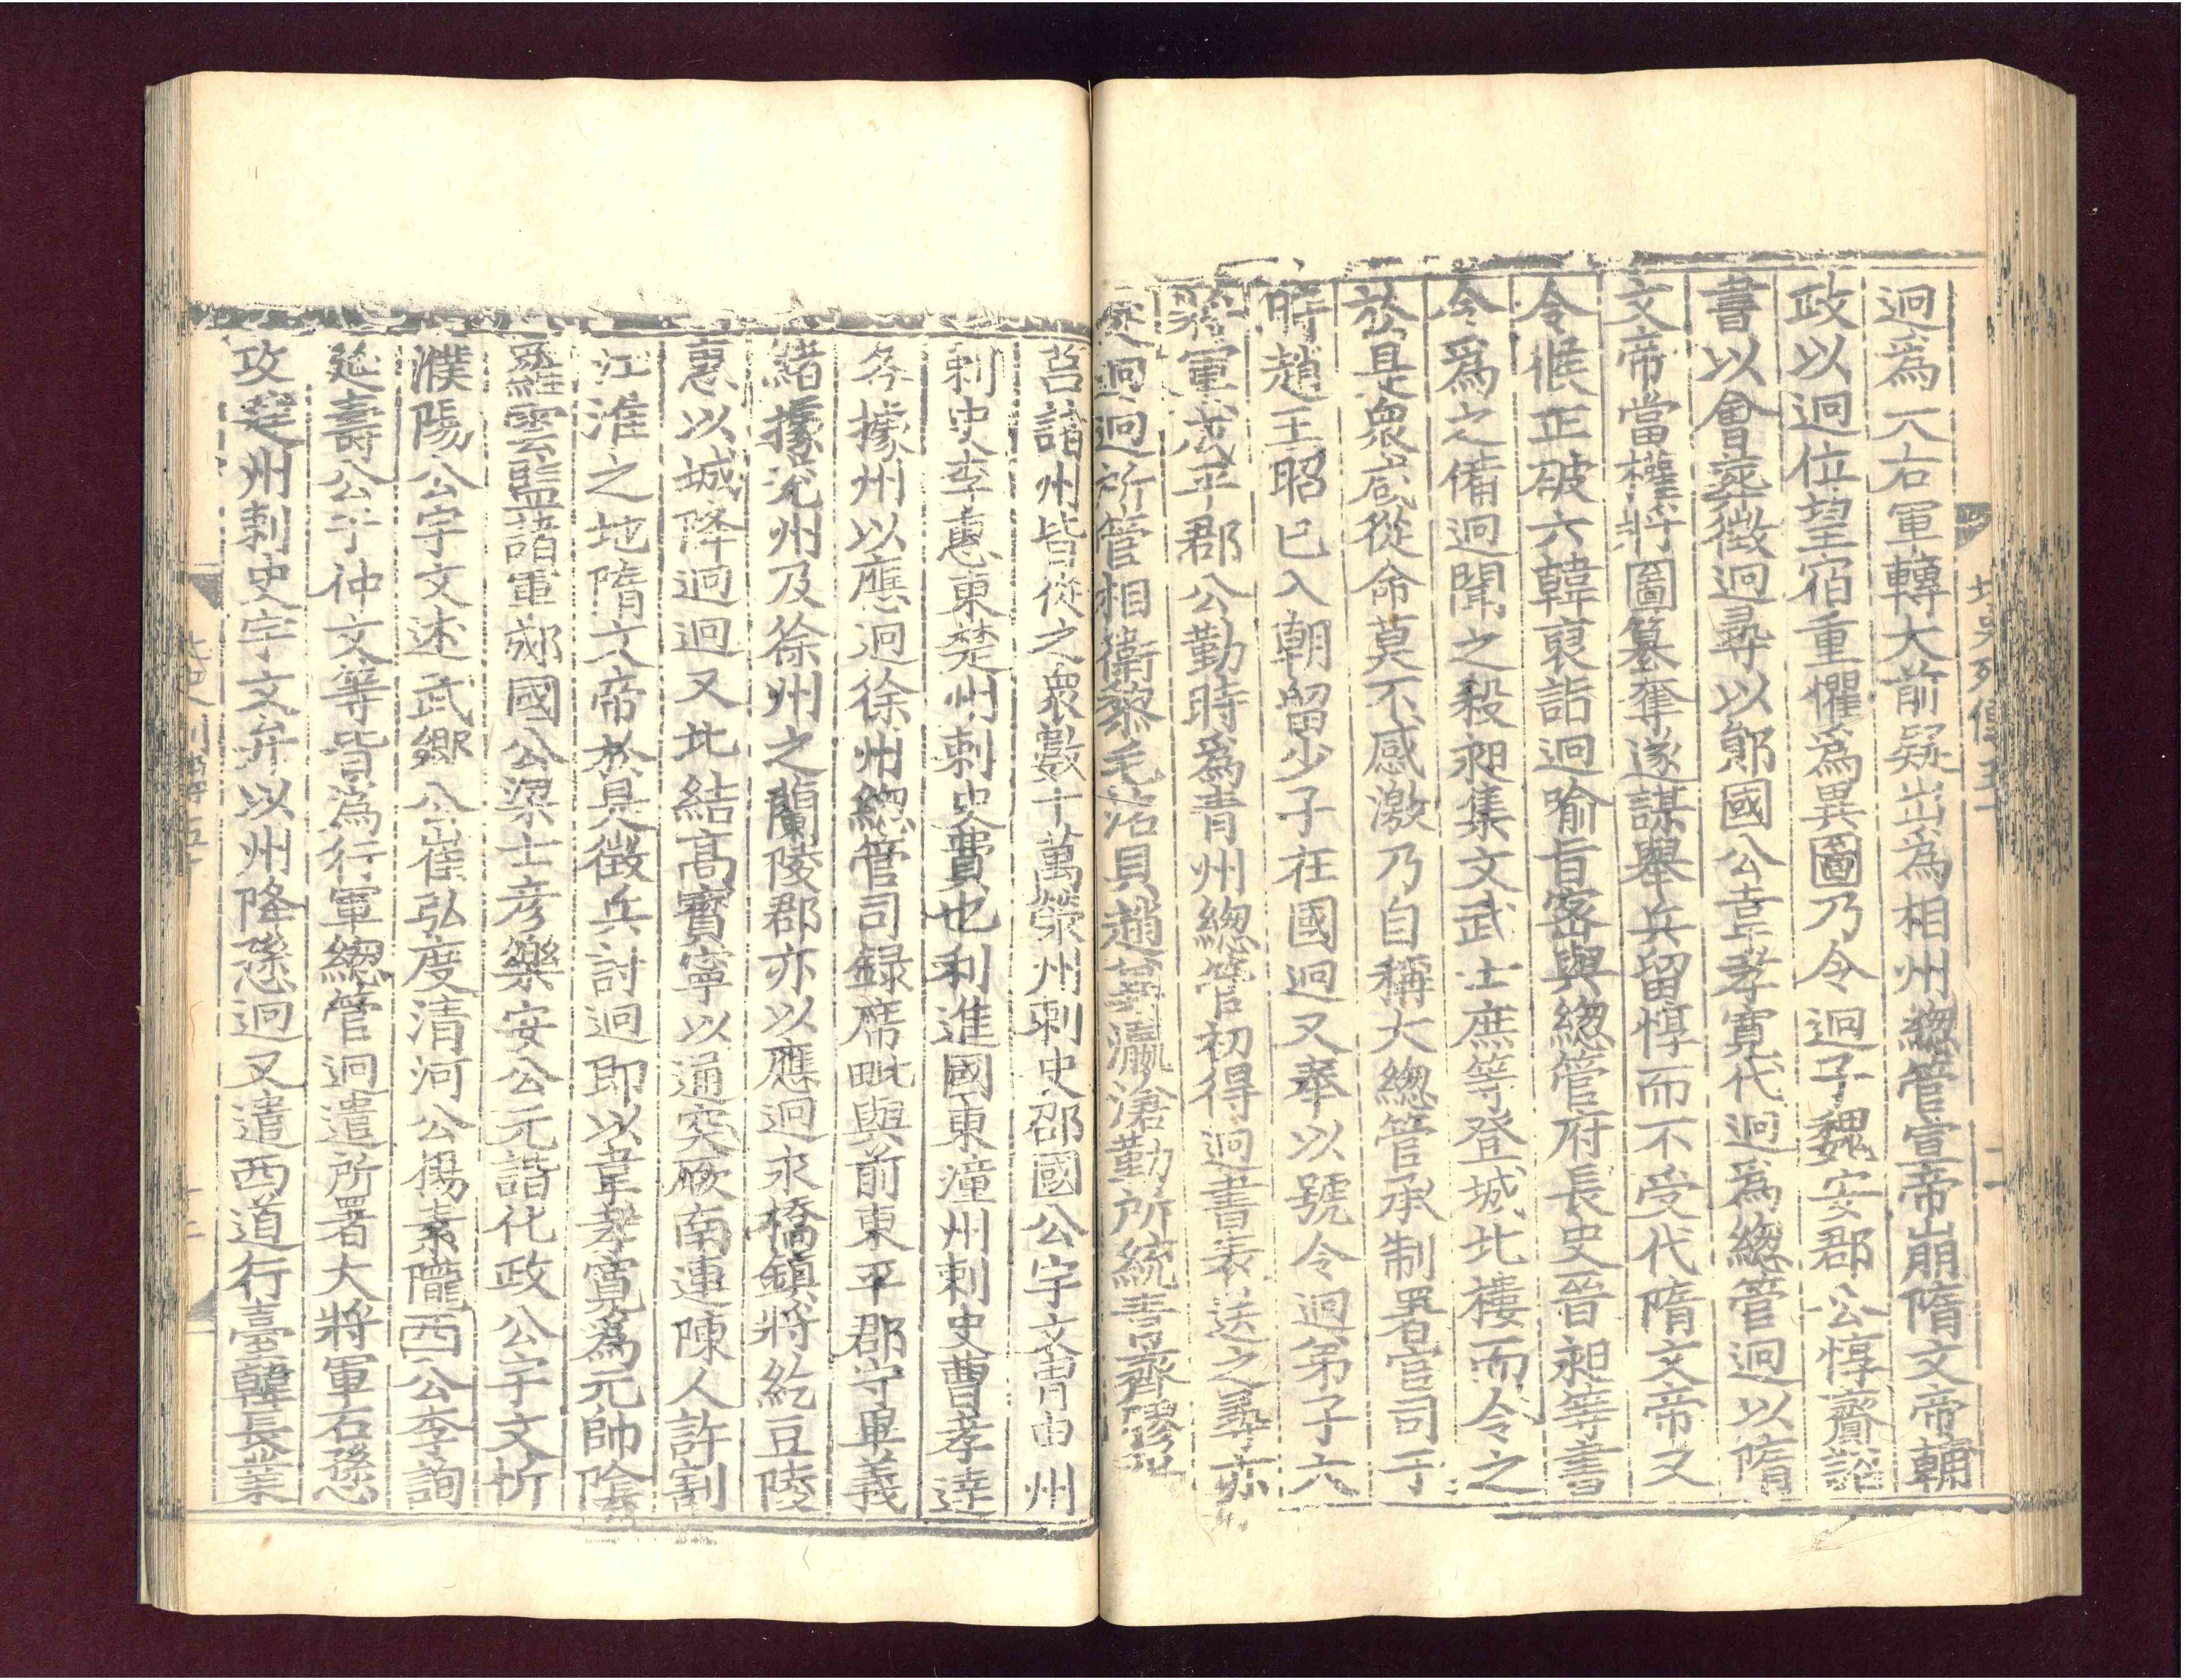 迥為大右軍轉大前疑出為相州緫管宣帝崩隋文帝輔
政以迥位望宿重懼為異圖乃令迥子魏安郡公惇齎詔
書以會葬徵迥尋以鄖國公韋孝寬代迥為緫管迥以隋
文帝當權將圖篡奪遂謀舉兵留惇而不受代隋文帝又
令候正破六韓裒詣迥喻旨密與緫管府長史晉昶等書
令為之備迥聞之殺昶集文武士庶等登城北樓而令之
於是衆咸從命莫不感激乃自稱大緫管承制署官司于
時趙王昭已入朝留少子在國迥又奉以號令迥弟子大
將軍成平郡公勤時為青州緫管初得迥書表送之尋亦
從迥迥所管相衛黎毛洺貝趙冀瀛滄勤所統青齊膠光
莒諸州皆從之衆數十萬滎州刺史邵國公宇文胄申州
刺史李惠東楚州刺史費也利進國東潼州刺史曹孝達
各據州以應迥徐州緫管司錄席毗與前東平郡守畢義
緒據兗州及徐州之蘭陵郡亦以應迥永橋鎮將紇豆陵
惠以城降迥迥又北結高寶寧以通突厥南連陳人許割
江淮之地隋文帝於是徵兵討迥即以韋孝寬為元帥陰
羅雲監諸軍郕國公梁士彥樂安公元諧化政公宇文忻
濮陽公宇文述武鄉公崔弘度清河公楊素隴西公李詢
延壽公于仲文等皆為行軍緫管迥遣所署大將軍石愻
攻建州刺史宇文弁以州降愻迥又遣西道行臺韓長業
北史列傳五十
十二